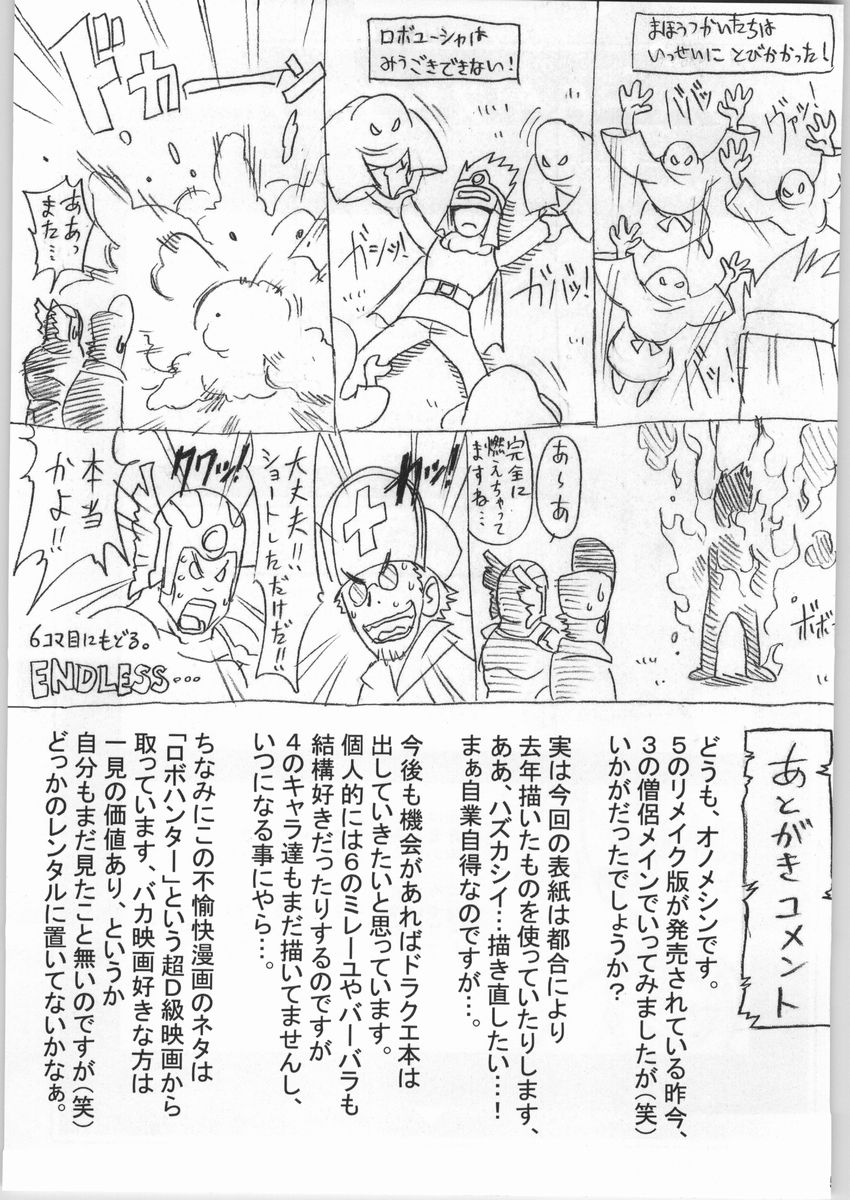 まほうつかいたちは
いっせいに とびかかった！
ババッ
ヴァッ！
バッ！
ロボユーシャは
みうごきできない！
ガシッ！
ガバッ！
ドカーーン
ああっ
また…
ボボ
あ～あ
完全に
燃えちゃって
ますね…
クワッ！
大丈夫！！
ショートしただけだ！！
クワッ！
本当
かよ！！
6コマ目にもどる。
ENDLESS…
あとがきコメント
どうも、オノメシンです。
５のリメイク版が発売されている昨今、
３の僧侶メインでいってみましたが（笑）
いかがだったでしょうか？
実は今回の表紙は都合により
去年描いたものを使っていたりします、
ああ、ハズカシイ…描き直したい……！
まぁ自業自得なのですが…。
今後も機会があればドラクエ本は
出していきたいと思っています。
個人的には６のミレーユやバーバラも
結構好きだったりするのですが
４のキャラ達もまだ描いてませんし、
いつになる事にやら…。
ちなみにこの不愉快漫画のネタは
「ロボハンター」という超Ｄ級映画から
取っています、バカ映画好きな方は
一見の価値あり、というか
自分もまだ見たこと無いのですが（笑）
どっかのレンタルに置いてないかなぁ。